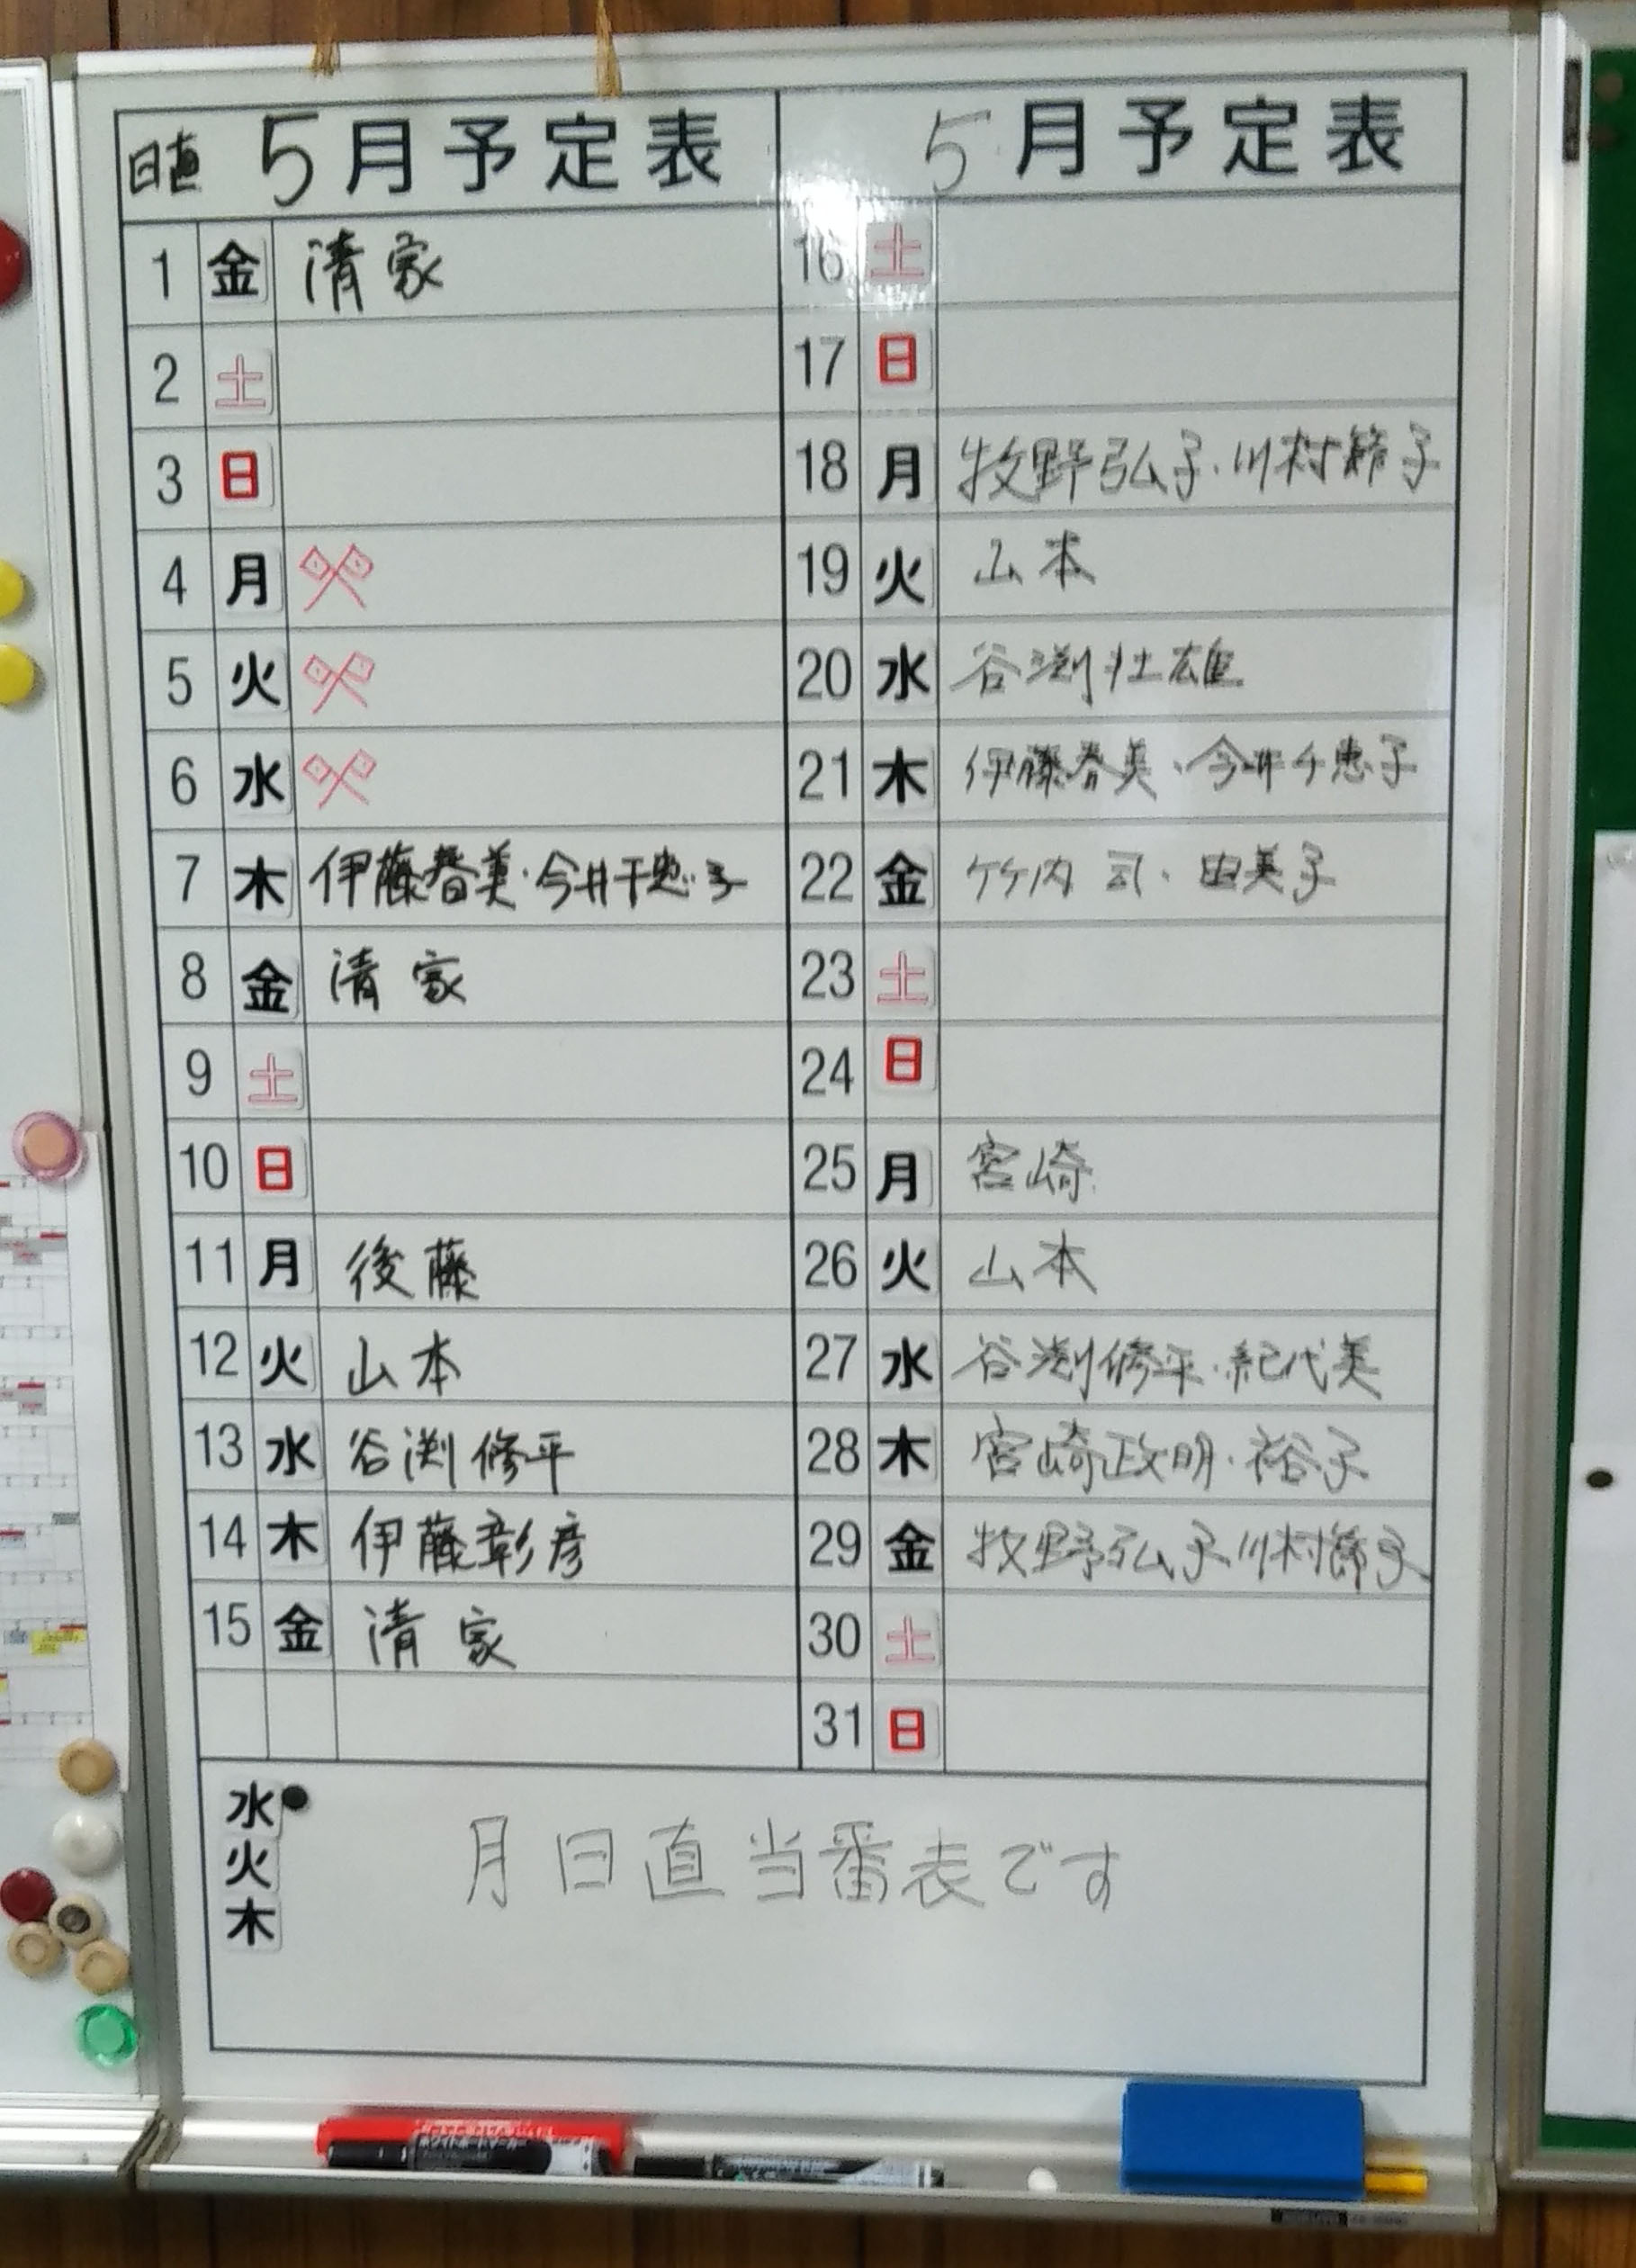 日直 5月予定表
1 金 清家
2 土
3 日
4 月
5 火
6 水
7 木 伊藤春美・今井千恵子
8 金 清家
9 土
10 日
11 月 後藤
12 火 山本
13 水 谷渕修平
14 木 伊藤彰彦
15 金 清家
5月予定表
16 土
17 日
18 月 牧野弘子・川村節子
19 火 山本
20 水 谷渕壮雄
21 木 伊藤春美、今井千恵子
22 金 竹内 司、由美子
23 土
24 日
25 月 宮崎
26 火 山本
27 水 谷渕修平・紀代美
28 木 宮崎政明・裕子
29 金 牧野弘子川村節子
30 土
31 日
水
火
木
月日直当番表です